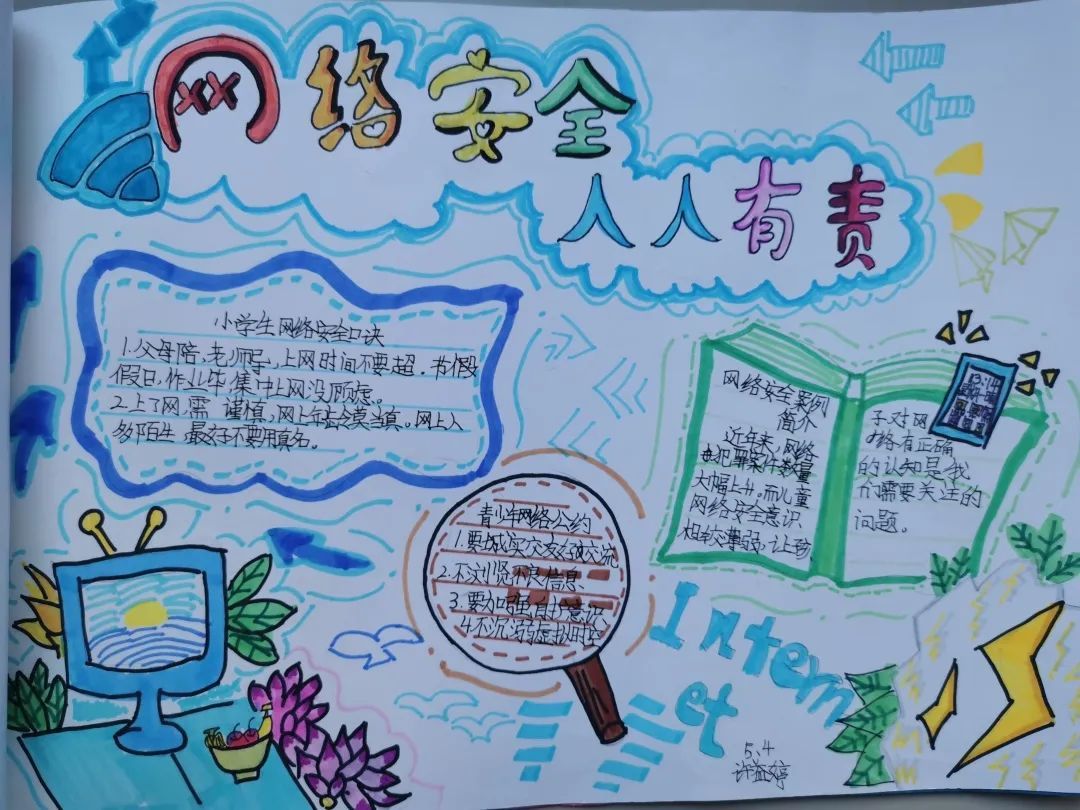 网络安全
人人有责
小学生网络安全口诀
1.父母陪,老师导,上网时间不要超。节假
假日,作业毕,集中上网没顾虑。
2.上了网,需谨慎,网上年龄莫当真。网上人
多陌生,最好不要用真名。
青少年网络公约
1.要诚实交友好交流
2.不浏览不良信息
3.要加强自护意识
4.不沉溺虚拟时空
网络安全案例
简介
近年来,网络
犯罪案件数量
大幅上升。而儿童
网络安全意识
相较薄弱,让孩
子对网
络有正确
的认知是我
们需要关注的
问题。
Intern
et
5.4